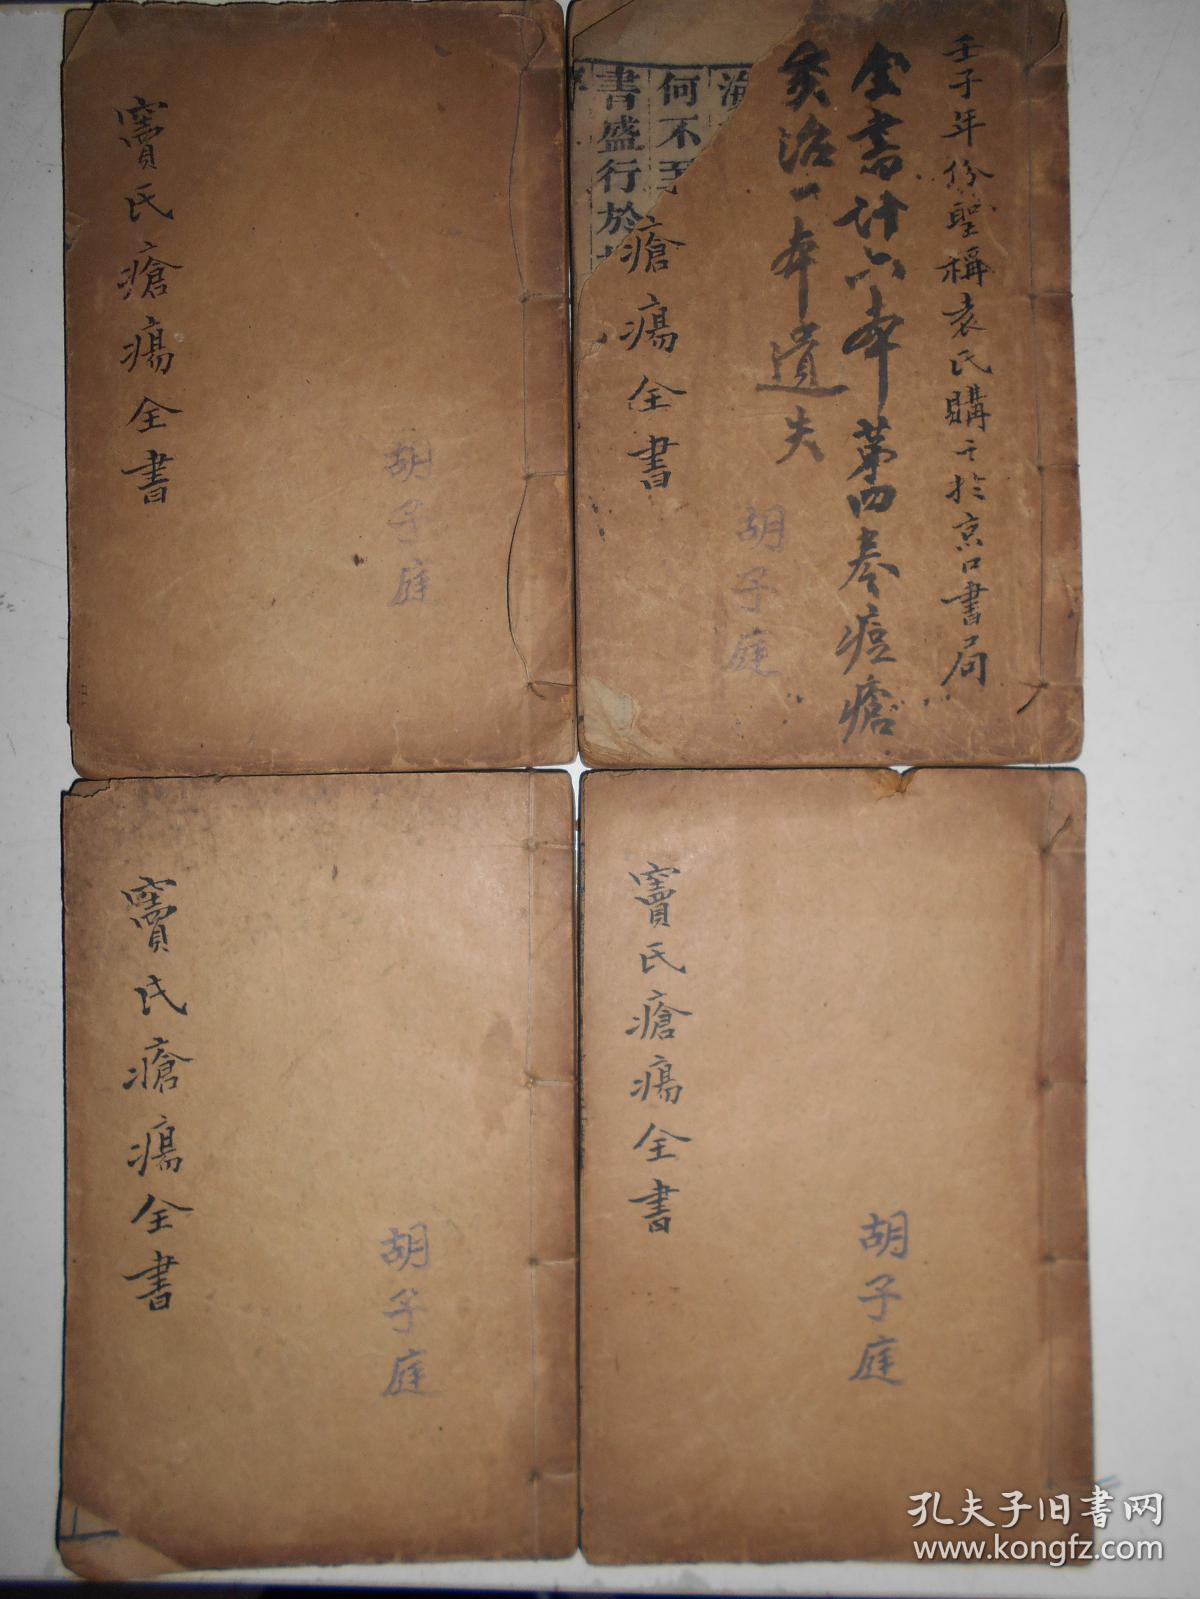 竇氏瘡瘍全書
胡子庭
壬子年份聖稱袁氏購之於京口書局
全書計六本第四卷痘瘡
灸治一本遺失
瘡瘍全書
胡子庭
何不至
書盛行於
竇氏瘡瘍全書
胡子庭
竇氏瘡瘍全書
胡子庭
孔夫子旧书网
www.kongfz.com